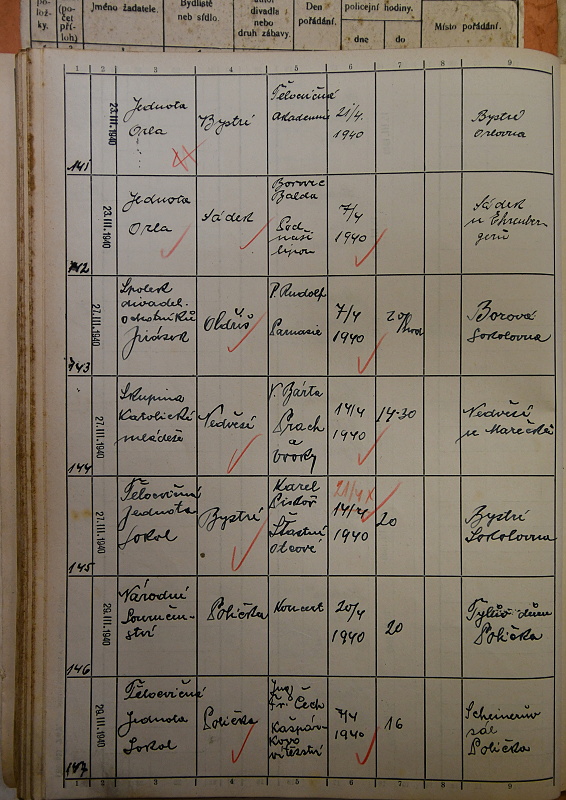 po-
lož-
ky.
(po-
čet
pří-
loh)
Jméno žadatele.
Bydliště
neb sídlo.
divadla
nebo
druh zábavy.
Den
pořádání.
policejní hodiny.
dne
do
Místo pořádání.
1 2 3 4 5 6 7 8 9
141
23. III. 1940
Jednota
Orla
Bystré
Tělocvičná
Akademie
21/4.
1940
Bystré
Orlovna
142
23. III. 1940
Jednota
Orla
Sádek
Borovec
Balda
Pod
naší
lípou
7/4
1940
Sádek
u Ehrenber-
gerů
143
27. III. 1940
Spolek
divadel.
ochotníků
Jirásek
Oldřiš
P. Rudolf
7/4
1940
20
hod
Borová
Sokolovna
144
27. III. 1940
Skupina
Katolické
mládeže
Nedvězí
V. Bárta
Prach
a
broky
14/4
1940
14·30
Nedvězí
u Marečků
145
27. III. 1940
Tělocvičná
Jednota
Sokol
Bystré
Karel
Piskoř
Šťastní
otcové
21/4
14/4
1940
20
Bystré
Sokolovna
146
29. III. 1940
Národní
Souručen-
ství
Polička
Koncert
20/4
1940
20
Tylův dům
Polička
147
29. III. 1940
Tělocvičná
Jednota
Sokol
Polička
Ing
Fr. Čech
Kašpár-
kovo
vítězství
7/4
1940
16
Scheinerův
sál
Polička
1 2 3 4 5 6 7 8 9